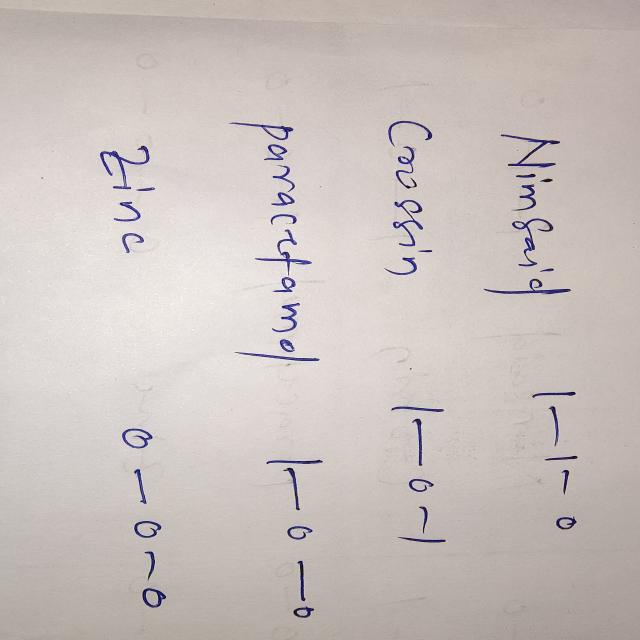 Nimsaid 1-1-0
Crossin 1-0-1
Paracetamol 1-0-0
Zinc 0-0-0